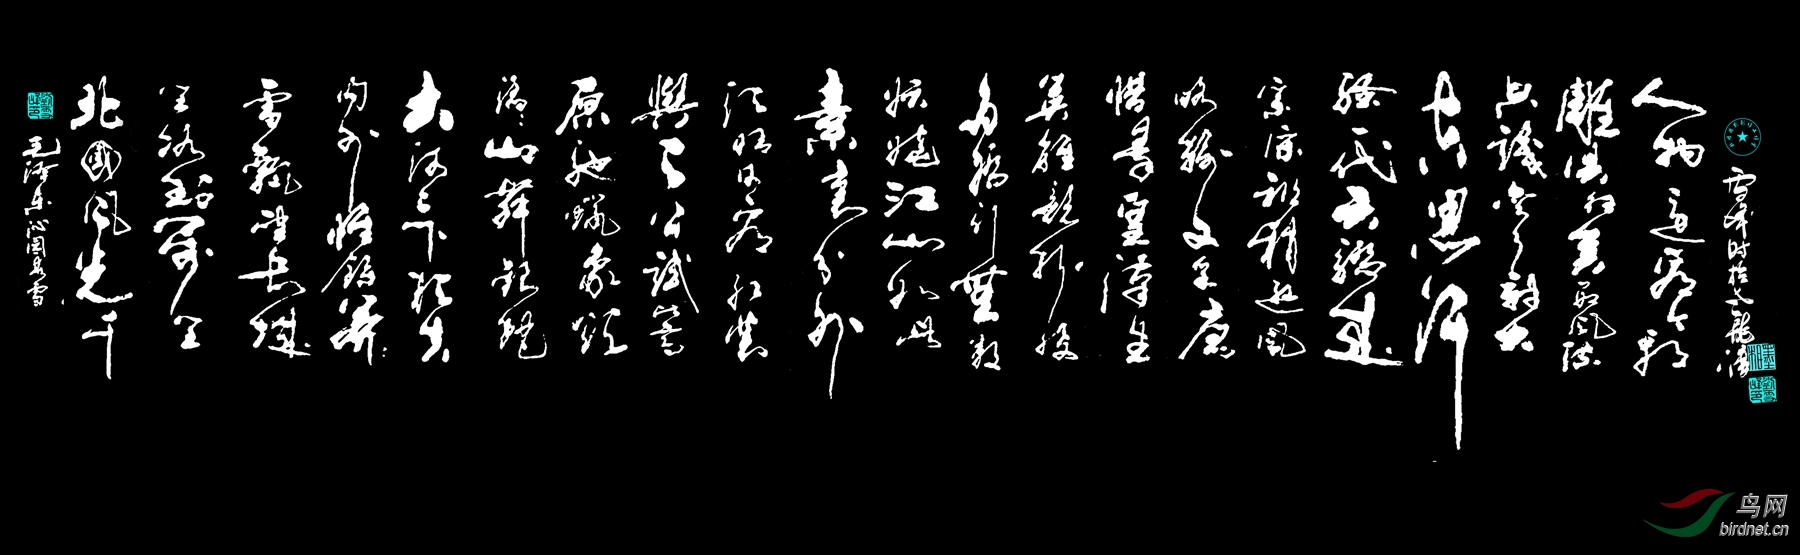 毛泽东沁园春雪
北国风光千
里冰封万里
雪飘望长城
内外惟余莽莽
大河上下顿失
滔滔山舞银蛇
原驰蜡象欲
与天公试高
须晴日看红装
素裹分外
妖娆江山如此
多娇引无数
英雄竞折腰
惜秦皇汉武
略输文采唐
宗宋祖稍逊风
骚一代天骄成
吉思汗
只识弯弓射大
雕俱往矣数风流
人物还看今朝
雪峰时
鸟网
birdnet.cn